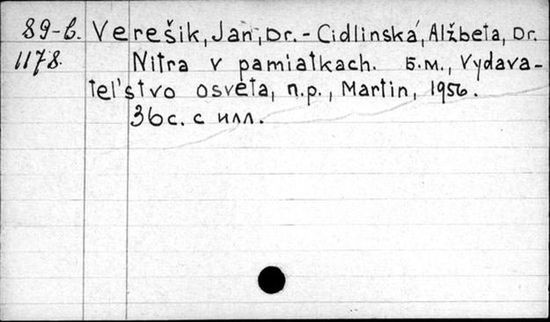 89-б. Verešik, Jan, Dr. - Cidlinská, Alžbeta, Dr.
1178. Nitra v pamiatkach. Б.м., Vydava-
teľstvo osveta, n.p., Martin, 1956.
36с. с илл.